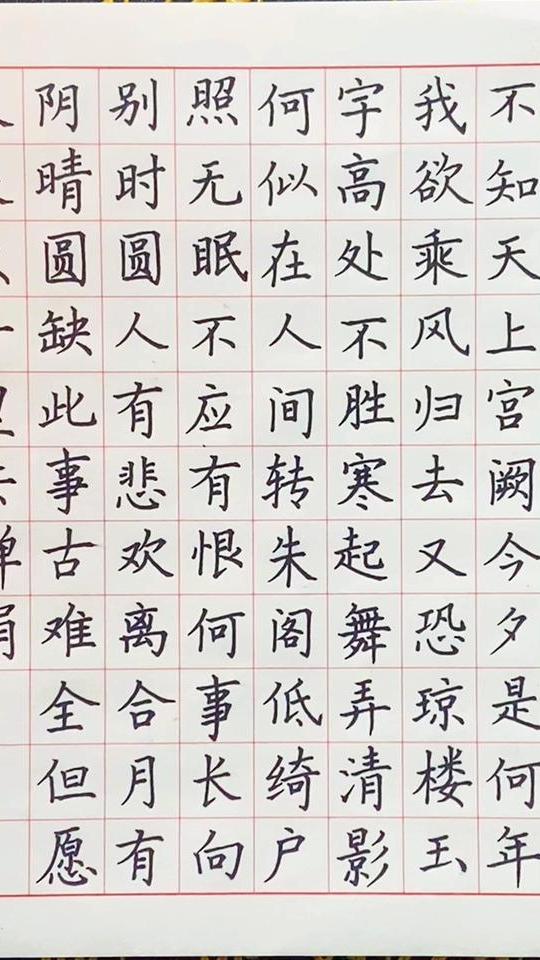 不知天上宫阙今夕是何年
我欲乘风归去又恐琼楼玉
宇高处不胜寒起舞弄清影
何似在人间转朱阁低绮户
照无眠不应有恨何事长向
别时圆人有悲欢离合月有
阴晴圆缺此事古难全但愿